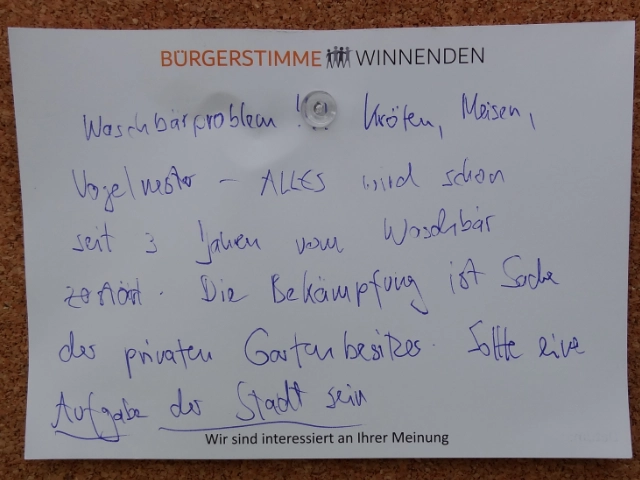 BÜRGERSTIMME WINNENDEN
Waschbärproblem !!! Kröten, Meisen,
Vogelnester – ALLES wird schon
seit 3 Jahren vom Waschbär
zerstört. Die Bekämpfung ist Sache
des privaten Gartenbesitzes. Sollte eine
Aufgabe der Stadt sein
Wir sind interessiert an Ihrer Meinung